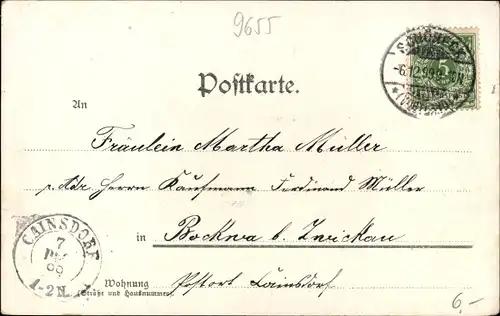 9655
Postkarte.
SCHÖNECK
-6.12.99.
(VOGTLAND)
5
An
Fräulein Martha Müller
p. Adr. Herrn Kaufmann Ferdinand Müller
in Bockwa b. Zwickau
CAINSDORF
7
1-2N.
Wohnung
(Straße und Hausnummer)
Postort Cainsdorf
6,-